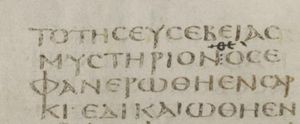 ΤΟΤΗϹΕΥϹΕΒΕΙΑϹ
ΜΥϹΤΗΡΙΟΝΟϹΕ
θε
ΦΑΝΕΡΩΘΗΕΝϹΑΡ
ΚΙ·ΕΔΙΚΑΙΩΘΗΕΝ